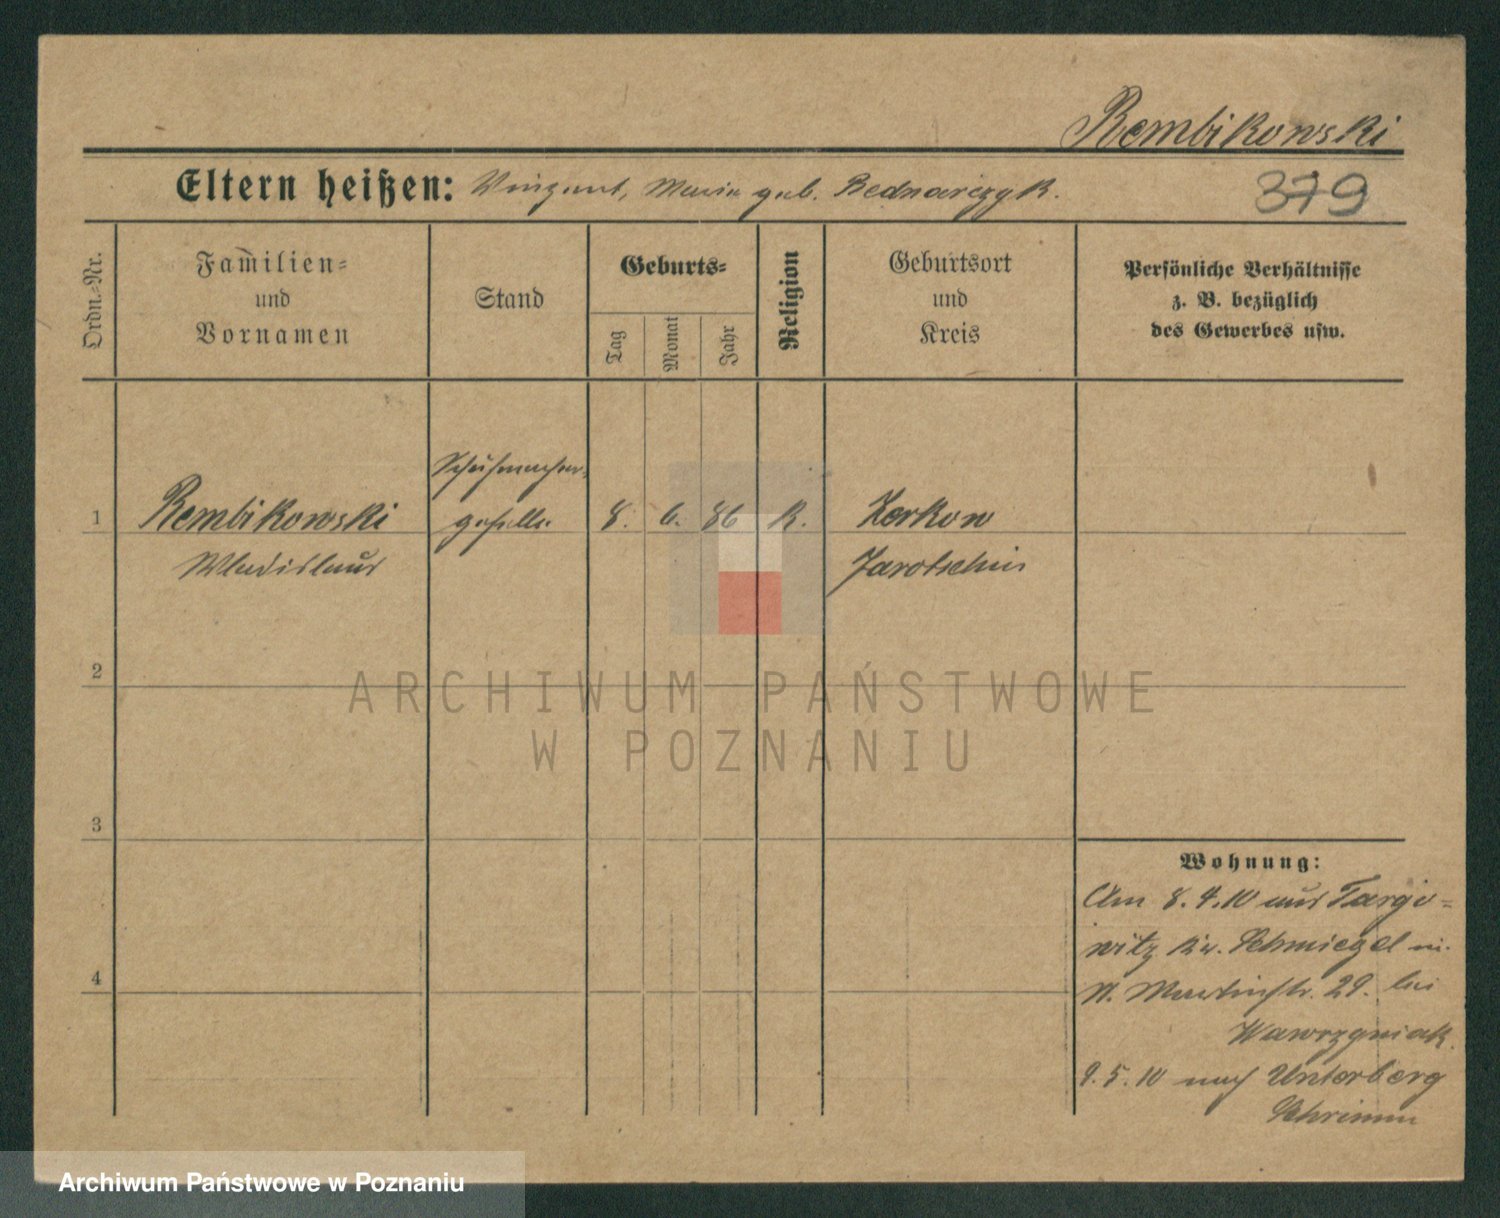 Rembikowski
Eltern heißen: Vinzent, Maria geb. Bednarczyk.
379
Ordn.-Nr.
Familien-
und
Vornamen
Stand
Geburts-
Tag
Monat
Jahr
Religion
Geburtsort
und
Kreis
Persönliche Verhältnisse
z. B. bezüglich
des Gewerbes usw.
Schuhmacher-
1 Rembikowski geselle 8. 6. 86 K. Zerkow
Wladislaus Jarotschin
2
3
4
Wohnung:
Am 8.4.10 aus Targo-
witz Kr. Schmiegel in.
St. Martinstr. 29. bei
Wawrzyniak.
9.5.10 nach Unterberg
Schrimm
ARCHIWUM PAŃSTWOWE
W POZNANIU
Archiwum Państwowe w Poznaniu